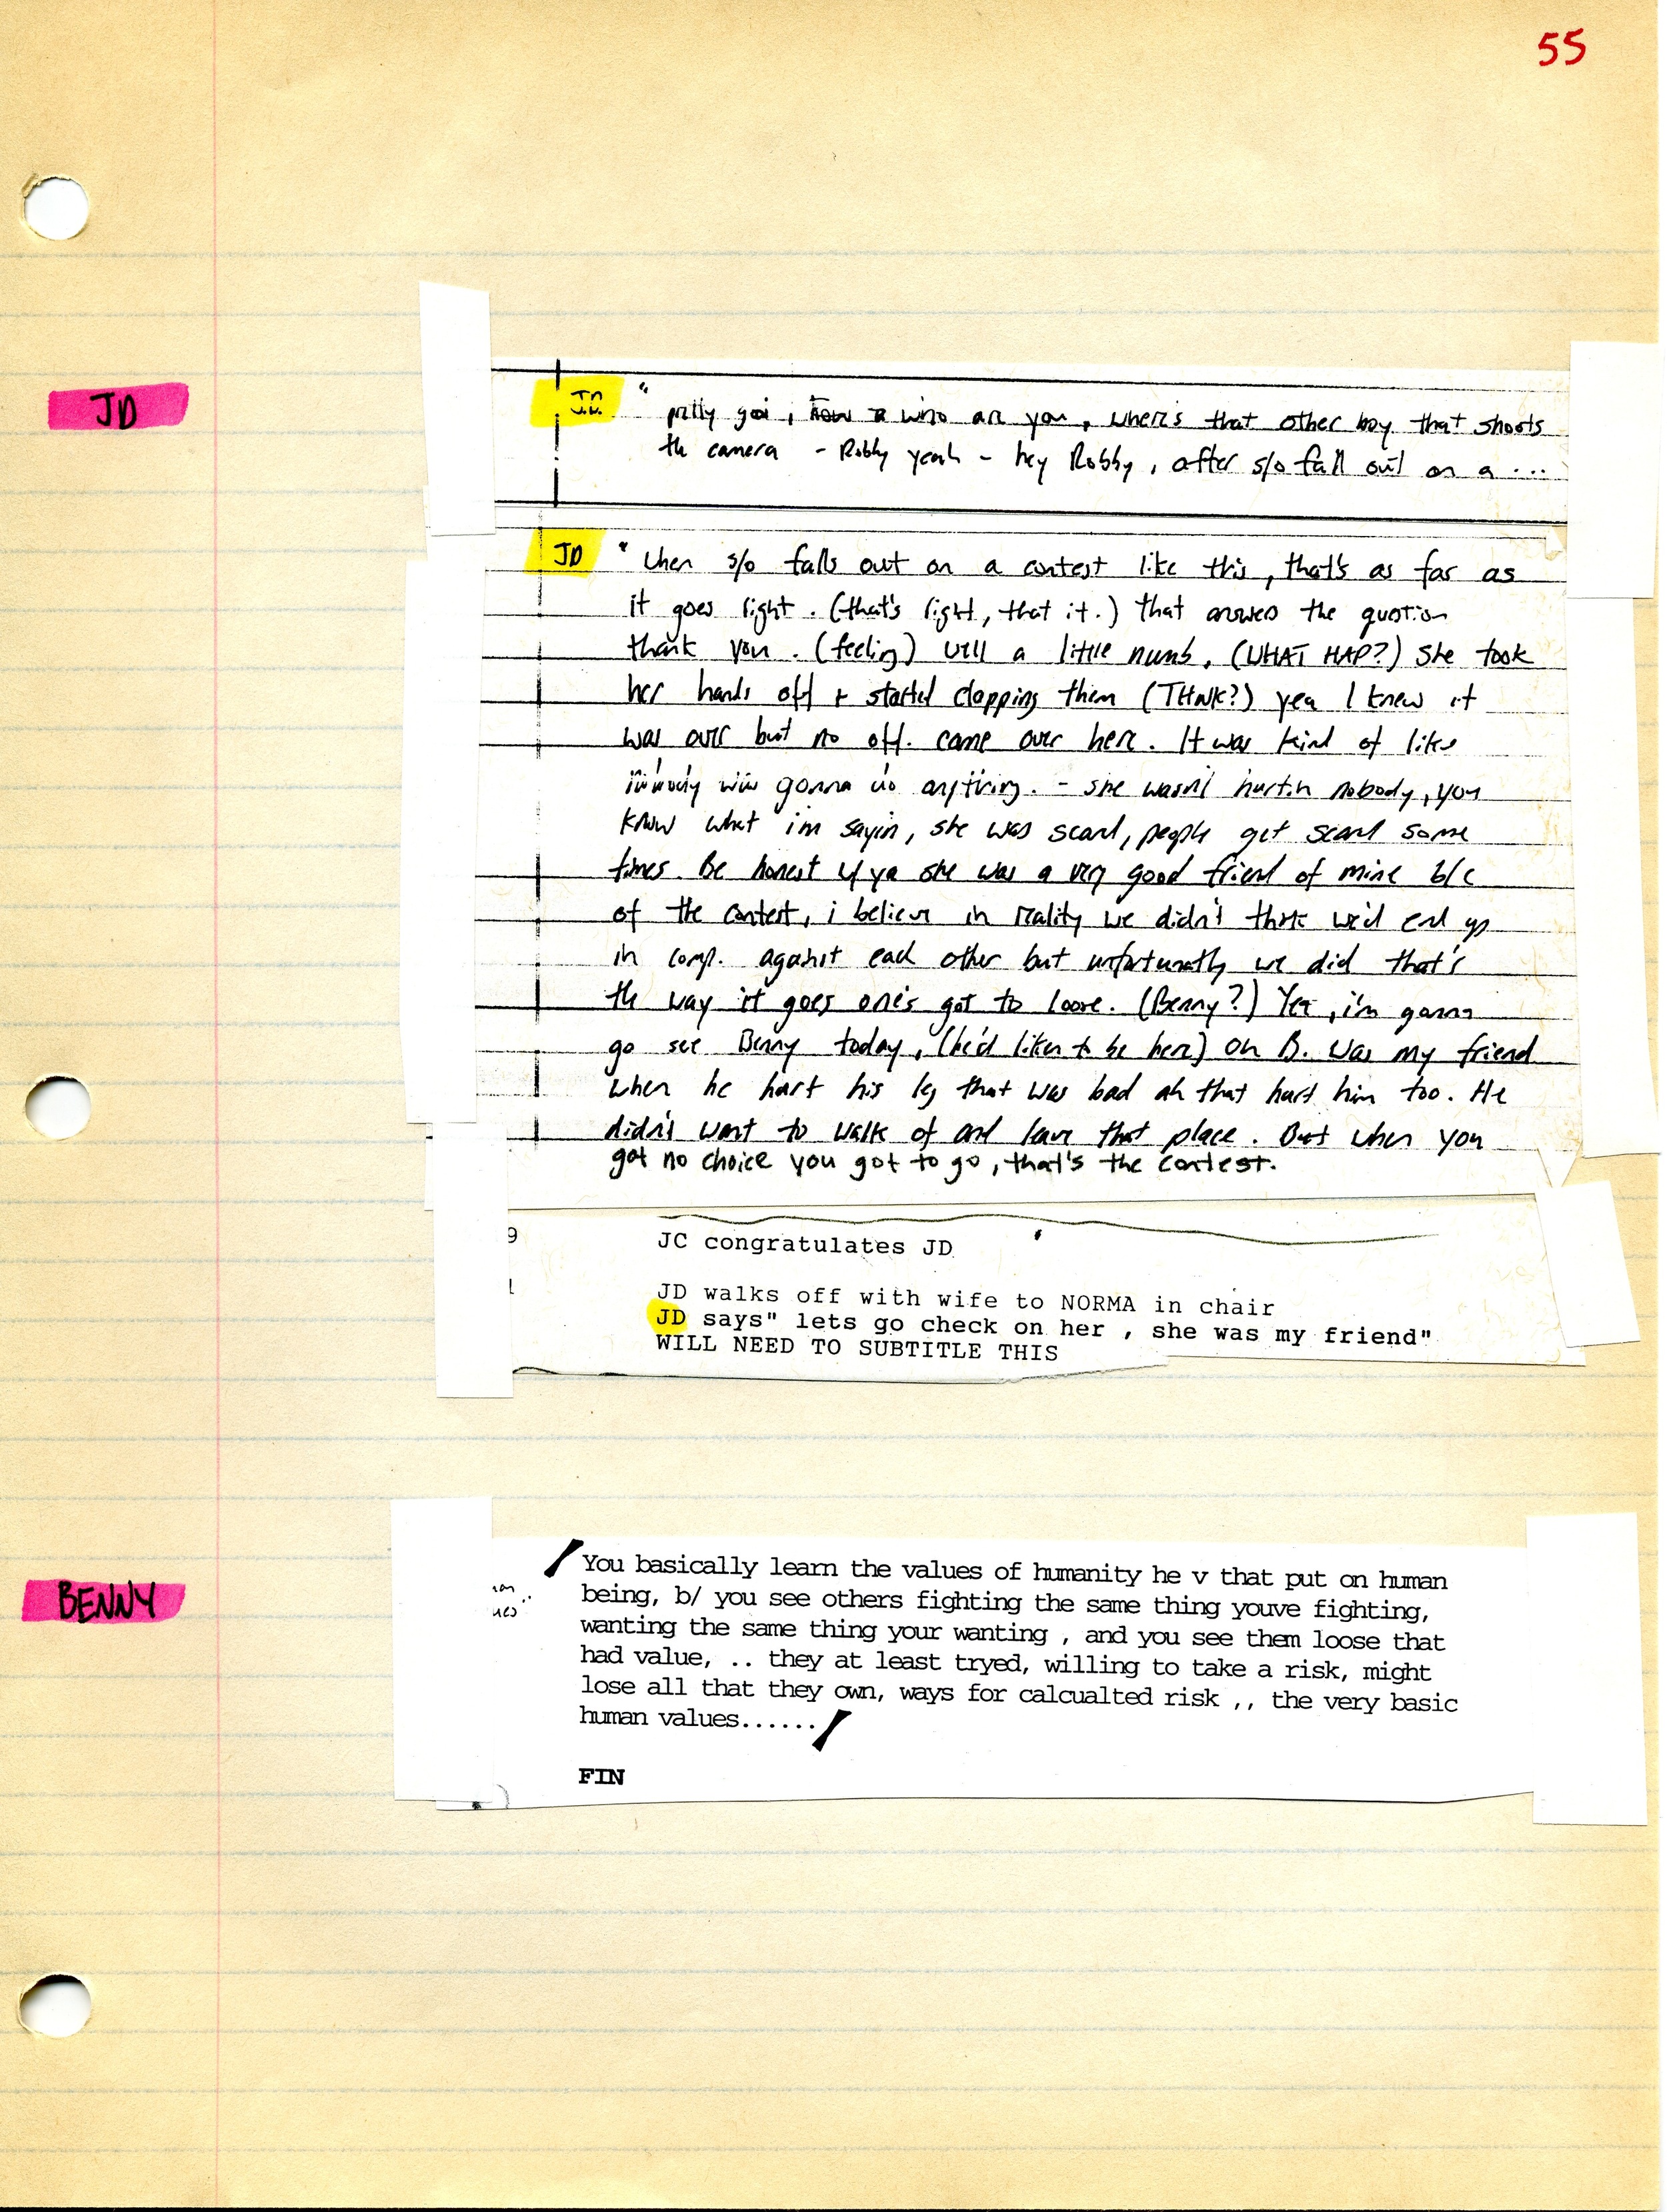 55
JD
JD " pritty good, how r who are you, where's that other boy that shoots
the camera - Robby yeah - hey Robby, after s/o fall out on a ...
JD " when s/o falls out on a contest like this, that's as far as
it goes right. (that's right, that it.) that answers the question
thank you. (feeling) well a little numb. (WHAT HAP?) She took
her hands off + started clapping them (THINK?) yea I knew it
was over but no off. came over here. It was kind of like
nobody was gonna do anything. - she wasn't hurtin nobody, you
know what i'm sayin, she was scard, people get scard some
times. Be honest w/ ya she was a very good friend of mine b/c
of the contest, i believe in reality we didn't think we'd end up
in comp. against each other but unfortunatly we did that's
the way it goes one's got to loose. (Benny?) Yea, i'm gonna
go see Benny today, (he'd liken to be here) oh B. was my friend
when he hurt his leg that was bad ah that hurt him too. He
didn't want to walk of and leave that place. But when you
got no choice you got to go, that's the contest.
9
JC congratulates JD
JD walks off with wife to NORMA in chair
JD says" lets go check on her , she was my friend"
WILL NEED TO SUBTITLE THIS
BENNY
You basically learn the values of humanity he v that put on human
being, b/ you see others fighting the same thing youve fighting,
wanting the same thing your wanting , and you see them loose that
had value, .. they at least tryed, willing to take a risk, might
lose all that they own, ways for calcualted risk ,, the very basic
human values......
FIN